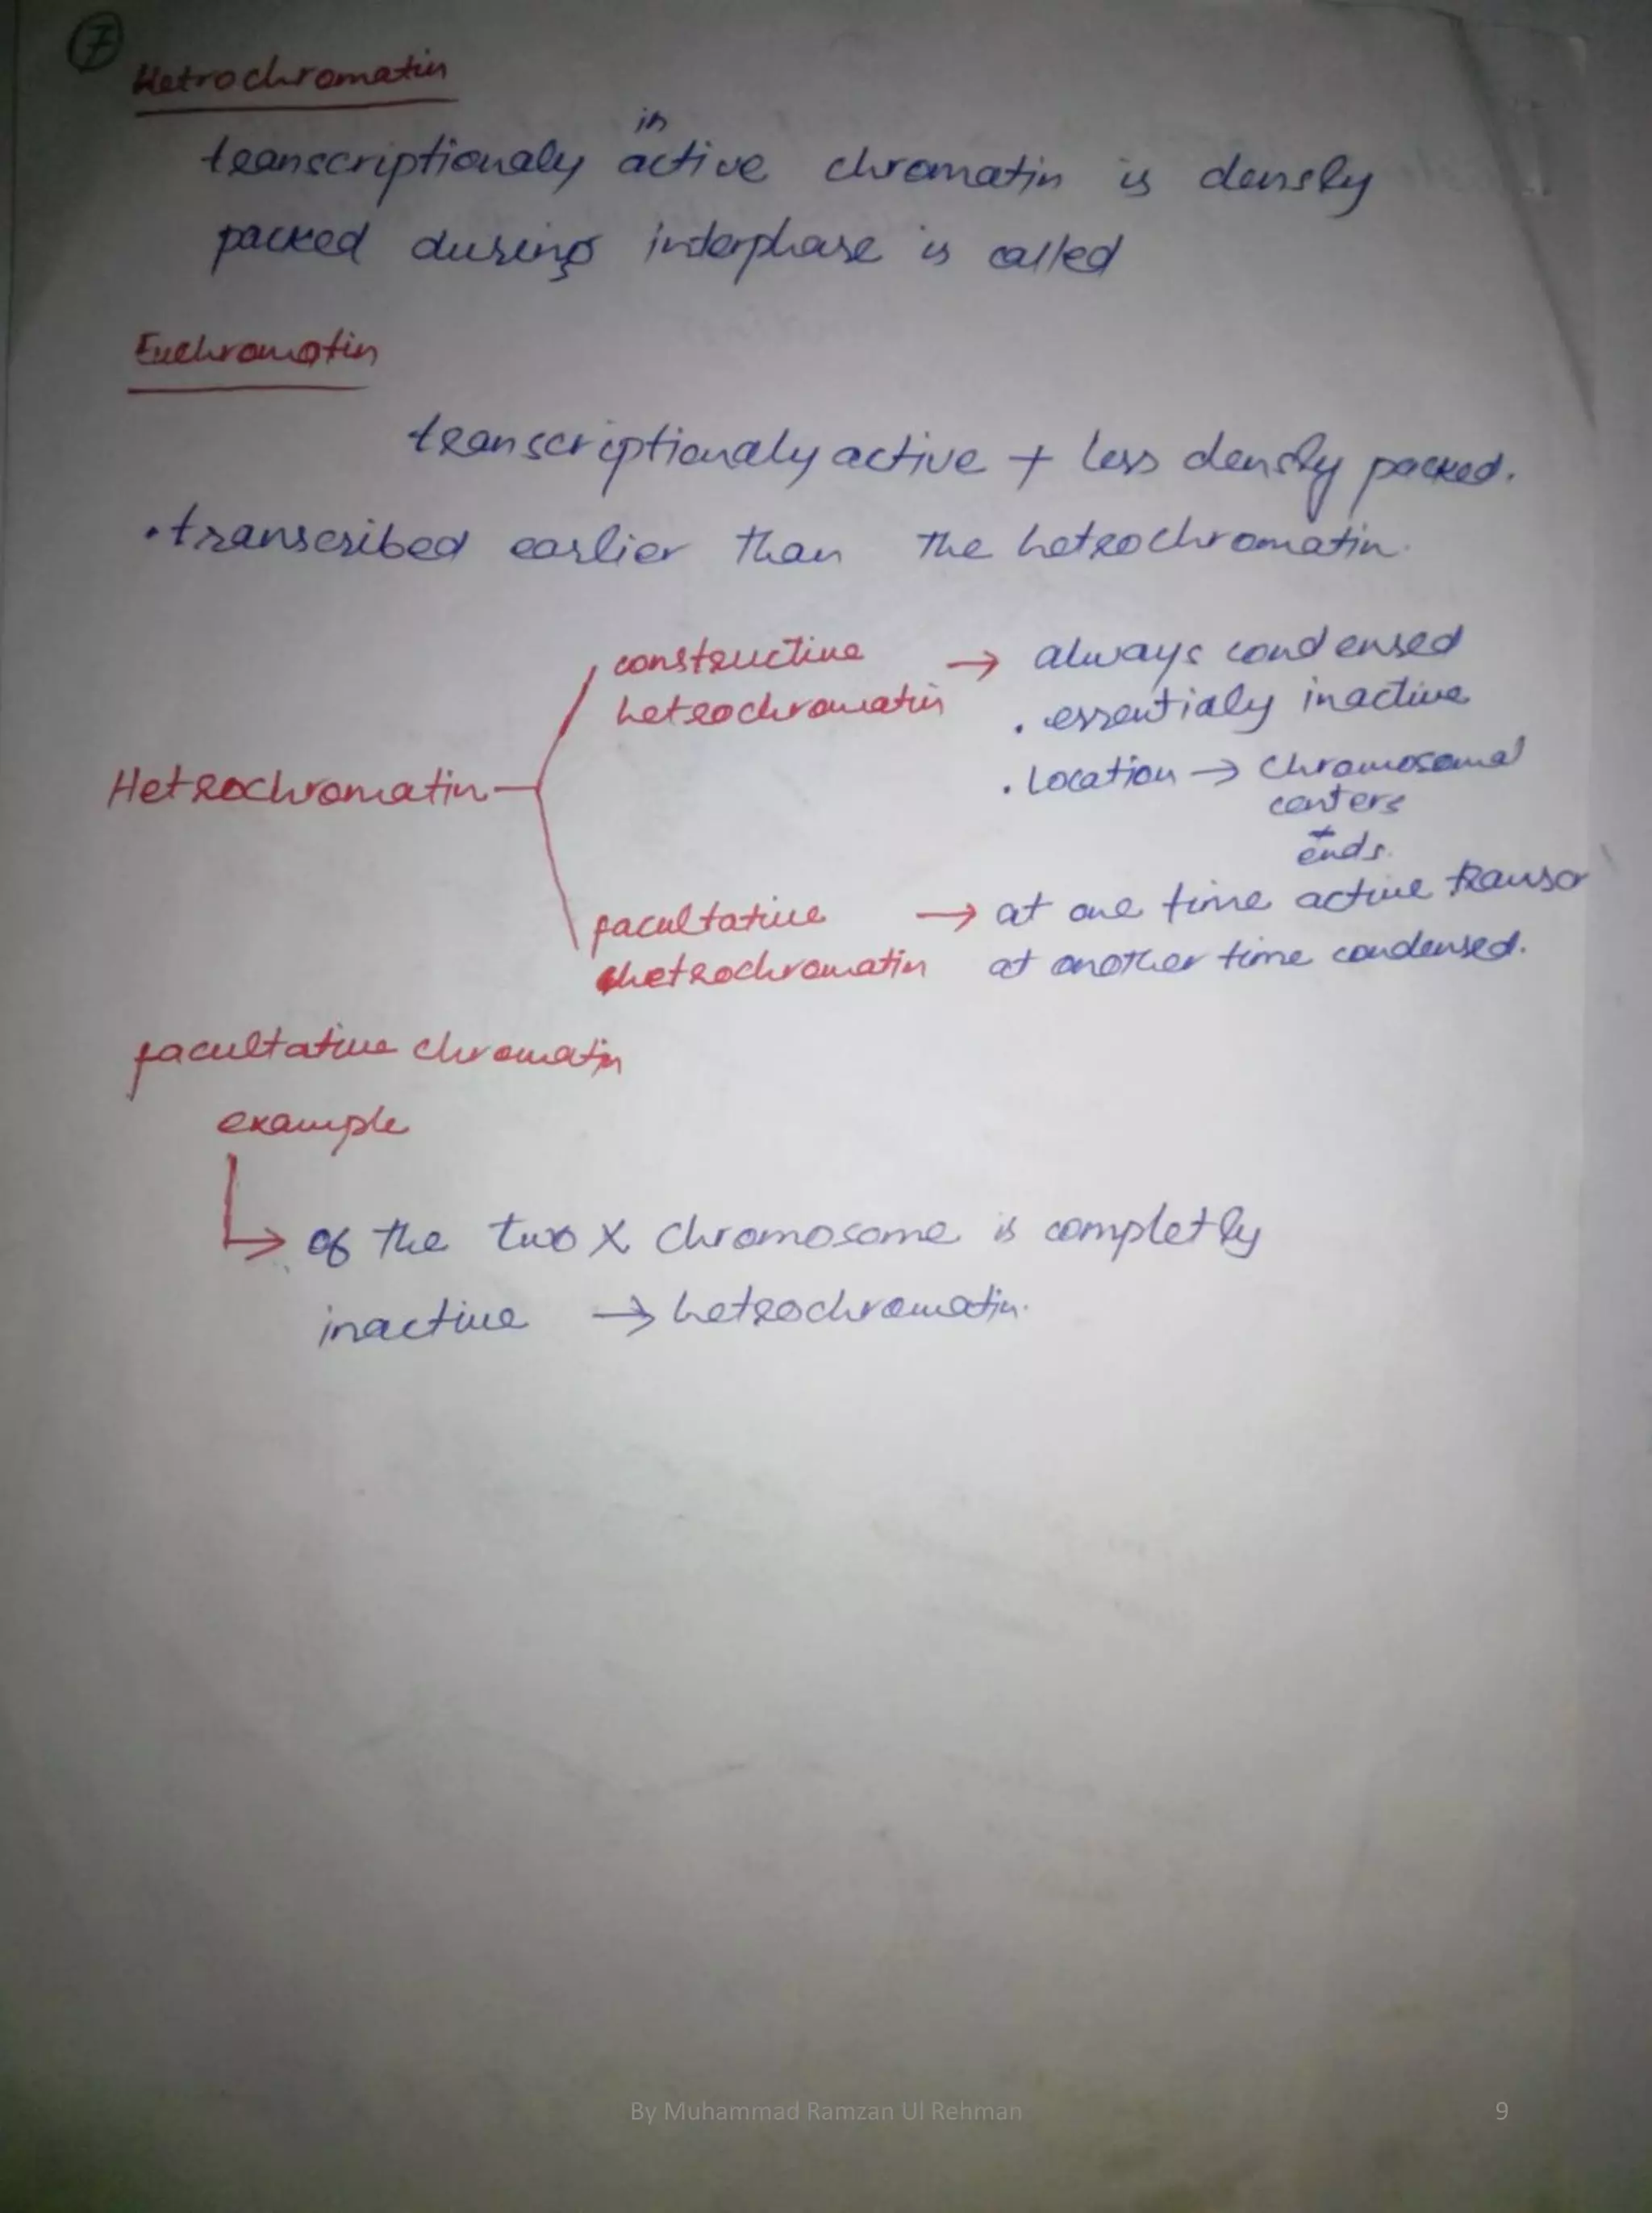 7
Hetrochromatin
in
transcriptionaly active chromatin is densly
packed during interphase is called
Euchromatin
transcriptionaly active + less densly packed.
• transcribed earlier than the heterochromatin.
constructive → always condensed
heterochromatin . essentialy inactive
. Location → Chromosomal
centers
+
ends.
Heterochromatin
facultative → at one time active transcr
hetrochromatin at another time condensed.
facultative chromatin
example
→ of the two X chromosome is completly
inactive → heterochromatin.
By Muhammad Ramzan Ul Rehman 9